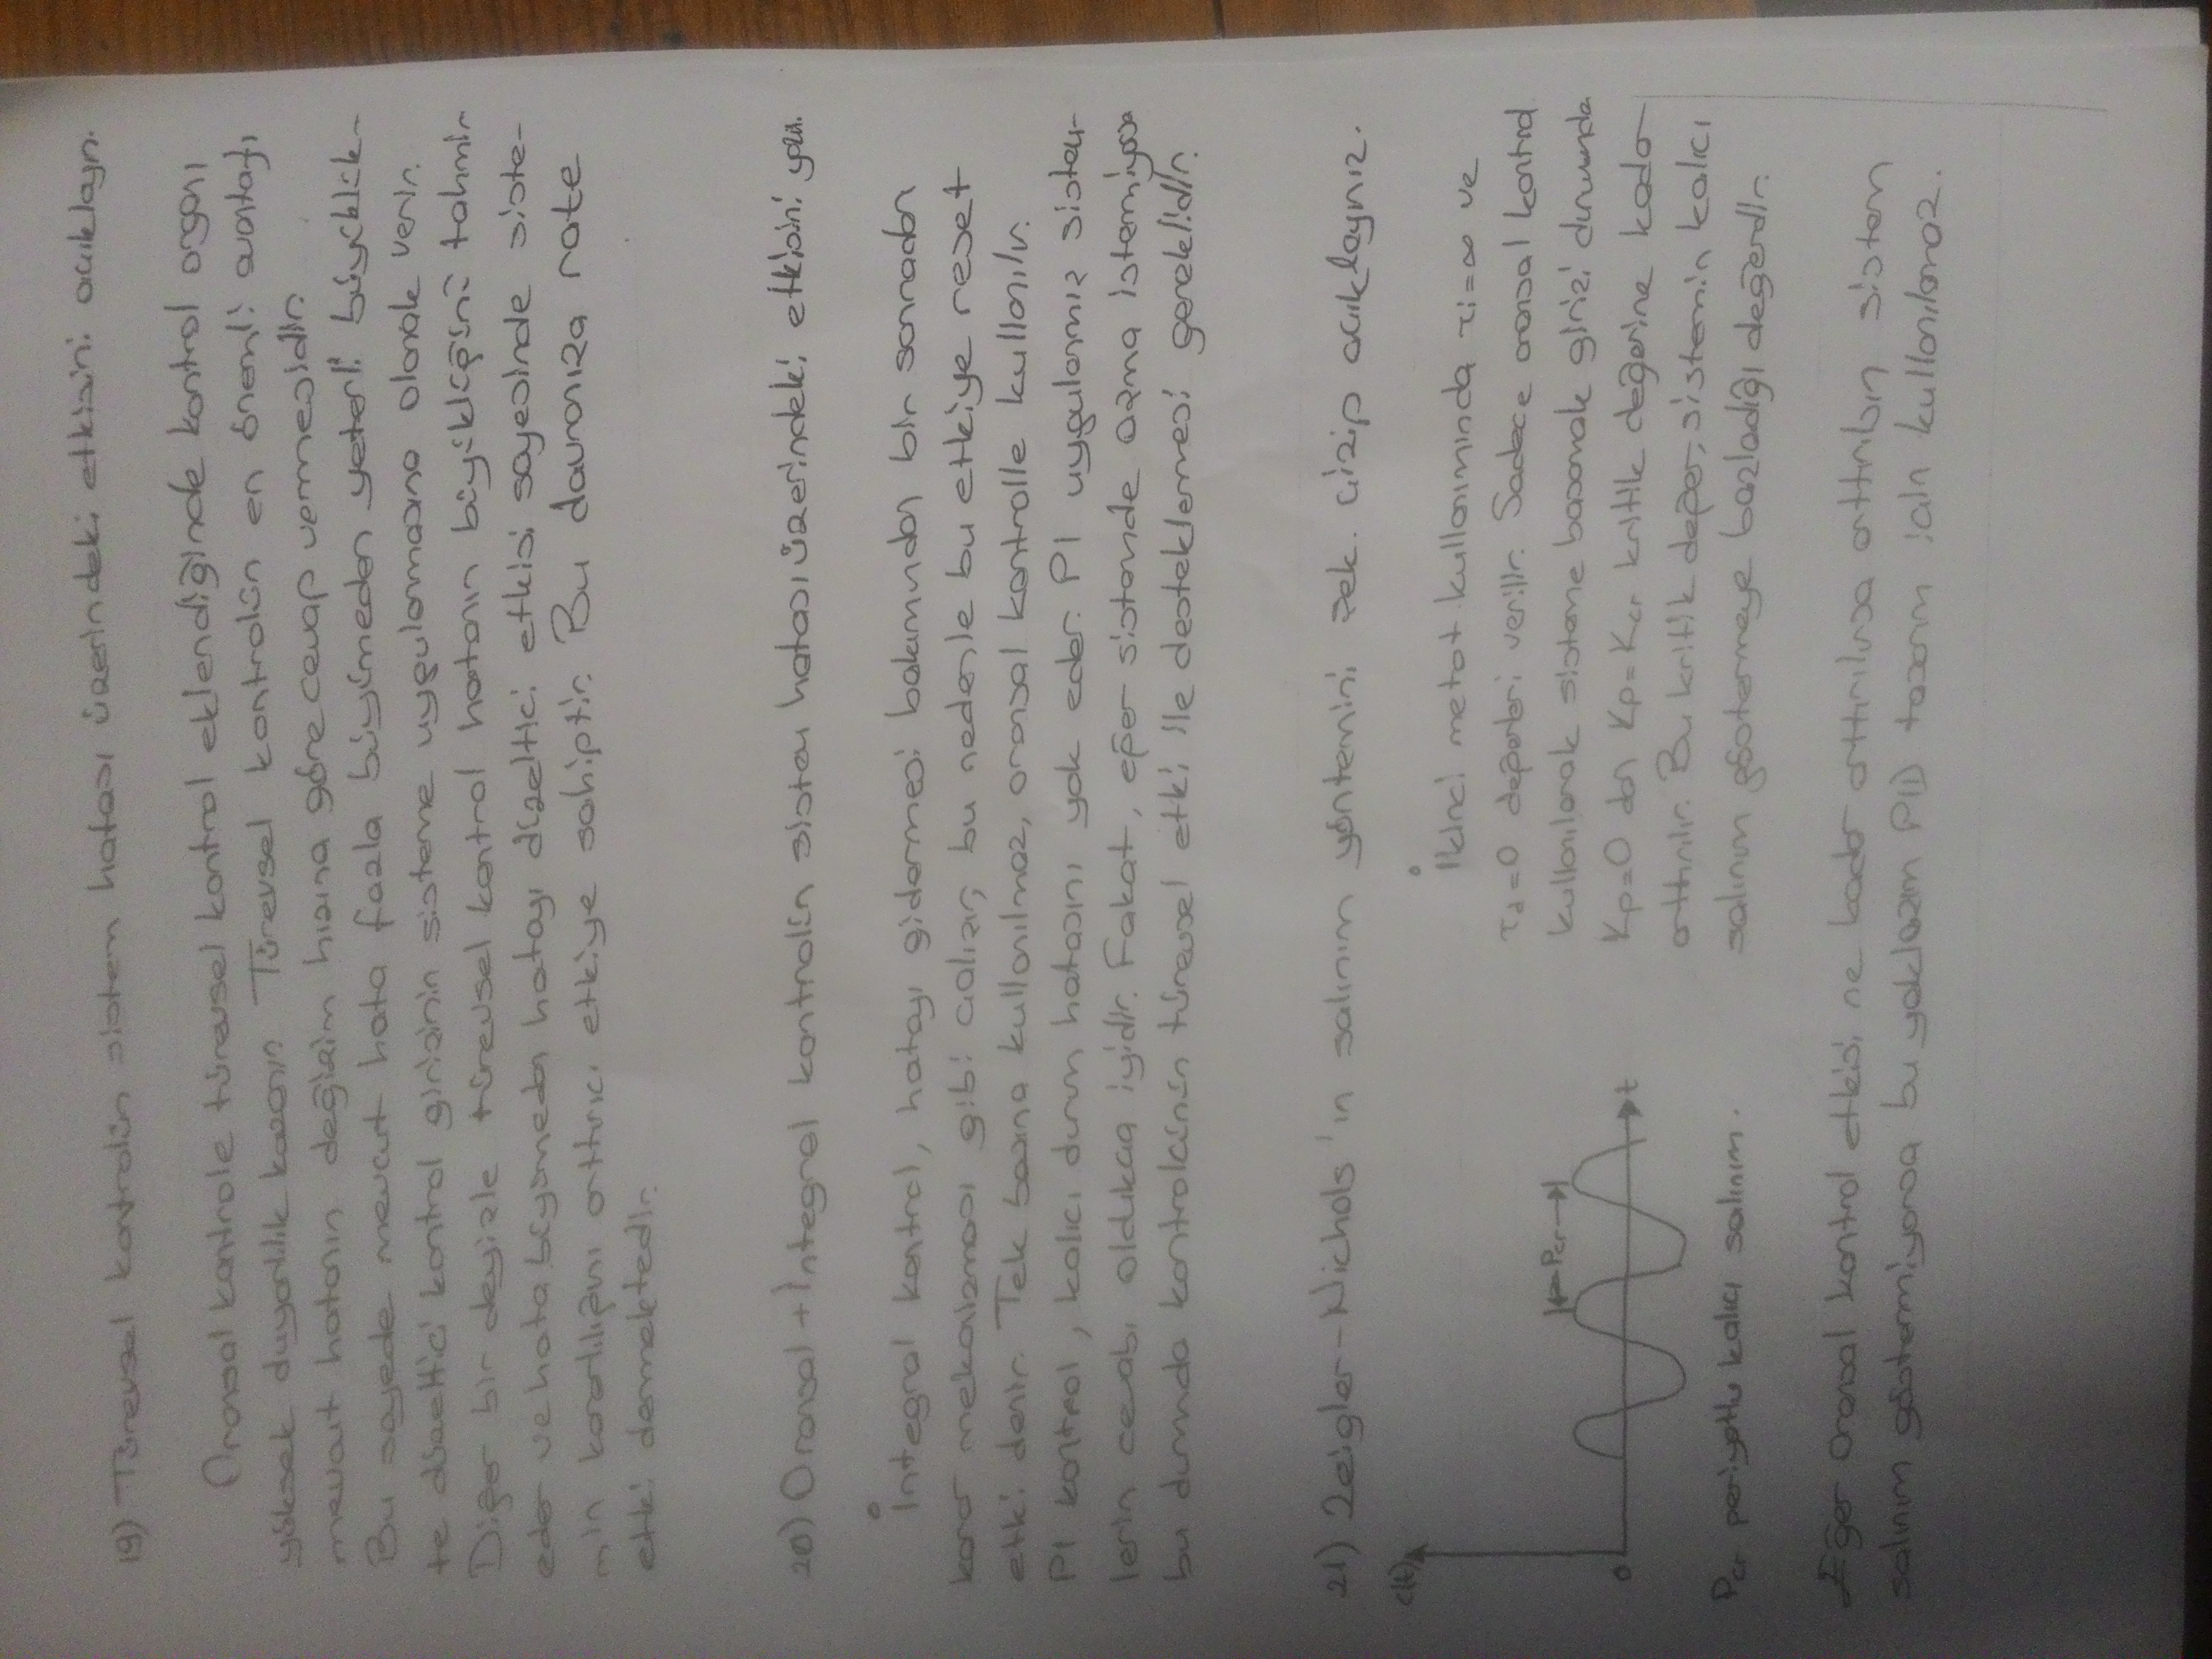 19) Türevsel kontrolün sistem hatası üzerindeki etkisini açıklayın.
Oransal kontrole türevsel kontrol eklendiğinde kontrol organı
yüksek duyarlılık kazanır. Türevsel kontrolün en önemli avantajı
mevcut hatanın değişim hızına göre cevap vermesidir.
Bu sayede mevcut hata fazla büyümeden yeterli büyüklük-
te düzeltici kontrol girişinin sisteme uygulanmasına olanak verir.
Diğer bir deyişle türevsel kontrol hatanın büyüklüğünü tahmin
eder ve hata büyümeden hatayı düzeltici etkisi sayesinde siste-
min kararlılığını arttırıcı etkiye sahiptir. Bu davranışa rate
etki denmektedir.
20) Oransal + İntegral kontrolün sistem hatası üzerindeki etkisini yazın.
İntegral kontrol, hatayı gidermesi bakımından bir sonradan
karar mekanizması gibi çalışır, bu nedenle bu etkiye reset
etki denir. Tek başına kullanılmaz, oransal kontrolle kullanılır.
PI kontrol, kalıcı durum hatasını yok eder. PI uygulanmış sistem-
lerin cevabı oldukça iyidir. Fakat, eğer sistemde aşma istenmiyorsa
bu durumda kontrolcünün türevsel etki ile desteklenmesi gereklidir.
21) Zeigler-Nichols'ın salınım yöntemini şek. çizip açıklayınız.
c(t)
Pcr
0
t
Pcr periyotlu kalıcı salınım.
İkinci metot kullanımında τi=∞ ve
τd=0 değerleri verilir. Sadece oransal kontrol
kullanılarak sisteme basamak girişi durumunda
Kp=0 dan Kp=Kcr kritik değerine kadar
arttırılır. Bu kritik değer, sistemin kalıcı
salınım göstermeye başladığı değerdir.
Eğer oransal kontrol etkisi ne kadar arttırılırsa arttırılsın sistem
salınım göstermiyorsa bu yaklaşım PID tasarım için kullanılamaz.